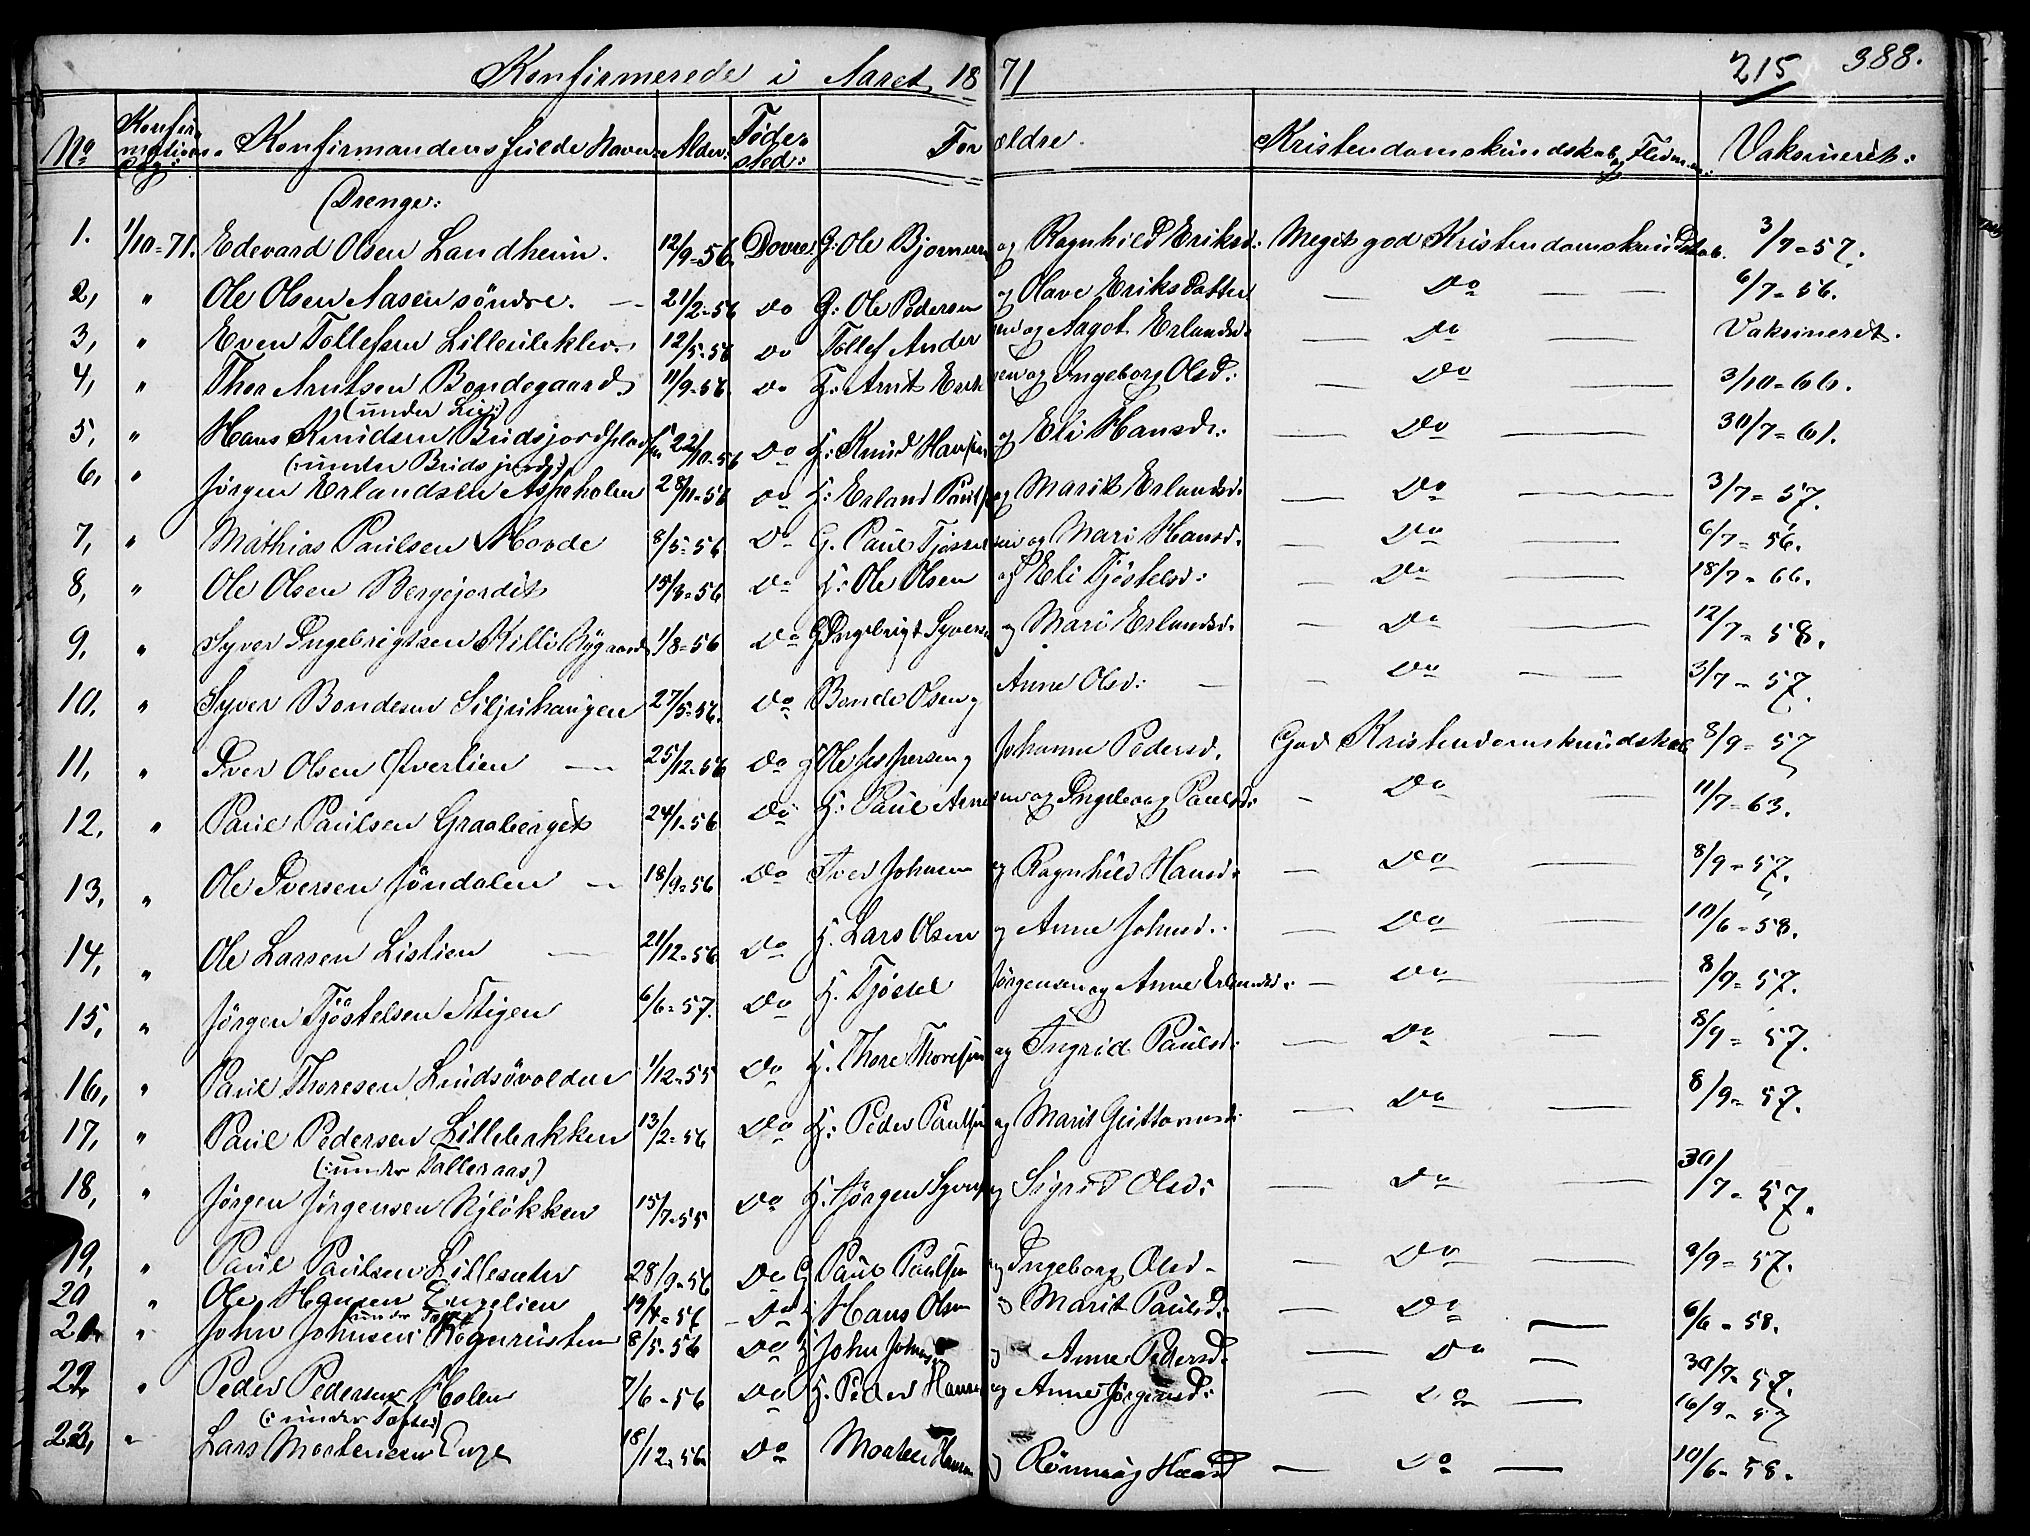 Konfirmerede i Aaret 1871 215 388.
No Konfirmations Dag: Konfirmandens fulde Navn: Alder: Fødested: Forældre. Kristendomskundskab og Flid Vaksineret:
Drenge:
1. 1/10-71. Edevard Olsen Landheim. 12/9-56. Dovre. G: Ole Bjørnersen og Ragnhild Eriksd: Meget god Kristendomskundskab. 3/7-57.
2, " Ole Olsen Aasen søndre. — 21/2-56 Do G: Ole Pedersen og Olave Eriksdatter — Do — — 6/7-56.
3, " Even Tollefsen 12/5-56 Do Tollef Andersen og Aagot Erlandsd: — Do — Vaksineret.
4, " Thor Arntsen Bondegaard 11/9-56. Do Arnt og Ingeborg Olsd: — Do — 3/10-66.
(under Lie:)
5, " Hans Knudsen Budsjordplads 22/10-56 Do Knud Hansen og Eli Hansd: — Do — 30/7-61.
(:under Budsjord:)
6, " Jørgen Erlandsen Aspeholen 28/11-56 Do Erland Paulsen og Marit Erlandsd: — Do — 3/7-57.
7, " Mathias Paulsen Hovde 8/5-56 Do G. Paul og Mari Hansd: — Do — 6/7-56.
8, " Ole Olsen Bergejordet 15/8-56 Do Ole Olsen og Eli Tjøstelsd: — Do — 18/7-66.
9, " Syver Ingebrigtsen Killi Nygaard 1/8-56 Do G Ingebrigt Syversen og Mari Erlandsd: — Do — 12/7-58.
10. " Syver Bondesen Siljuhaugen 27/5-56. Do Bonde Olsen og Anne Olsd: — — Do — 3/7-57.
11, " Iver Olsen Øverlien — 25/12-56 Do Ole Jespersen og Johanne Pedersd. God Kristendomskundskab 8/9-57
12. " Paul Paulsen Graaberget 24/1-56 Do Paul og Ingeborg Paulsd: — Do — 11/7-63.
13, " Ole Iversen Jøndalen — 18/9-56 Do Iver Johnsen og Ragnhild Hansd: — Do — 8/9-57.
14, " Ole Larsen Listien — 21/12-56 Do Lars Olsen og Anne Johnsd.. — Do — 10/6-58.
15, " Jørgen Tjøstelsen Stigen 6/6-57. Do Tjøstel Jørgensen og Anne Erlandsd: — Do — 8/9-57.
16, " Paul Thoresen Lindsøvolden 1/12-55 Do Thore Thoresen og Ingrid Paulsd: — Do — 8/9-57.
17, " Paul Pedersen Lillebakken 13/2-56 Do Peder Paulsen og Marit Guttormsd: — Do — 8/9-57.
(:under Talleraas)
18, " Jørgen Jørgensen Nyløkken 15/7-55 Do Jørgen Syversen og Sigrid Olsd: — Do — 30/7-57.
19, " Paul Paulsen Lillesæter 28/9-56 Do G Paul Paulsen og Ingeborg Olsd — Do — 8/9-57.
20 " Ole Hansen Engelien 19/4-56 Do Hans Olsen og Marit Paulsd: — Do — 6/6-58.
21. " John Johnsen 8/5-56 Do John Johnsen og Anne Pedersd: — Do — 30/7-57.
22, " Peder Pedersen Holen 7/6-56 Do Peder Hansen og Anne Jørgensd: — Do — 16/9-57
(:under Tofte:)
23, " Lars Mortensen Enge 18/12-56 Do Morten Hansen og Rønnaug Hansd — Do — 10/6-58.